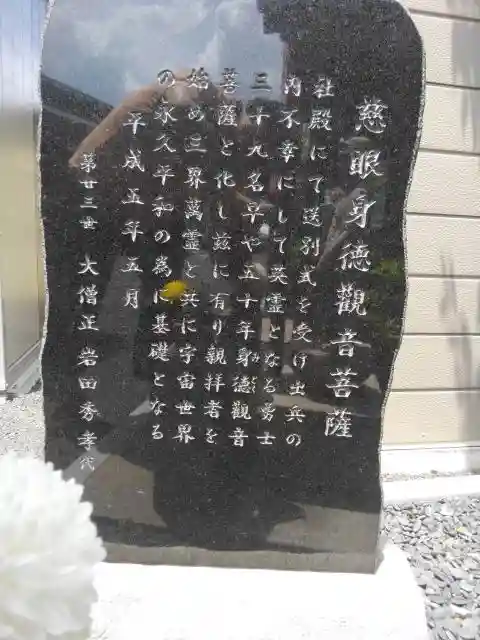 慈眼身徳觀音菩薩
社殿にて送別式を受け出兵の
内不幸にして英霊となる勇士
三十九名早や五十年身徳觀音
みとく
菩薩と化し茲に有り親拝者を
始め三界萬霊と共に宇宙世界
の永久平和の為に基礎となる
平成五年五月
第廿三世 大僧正 岩田秀孝代